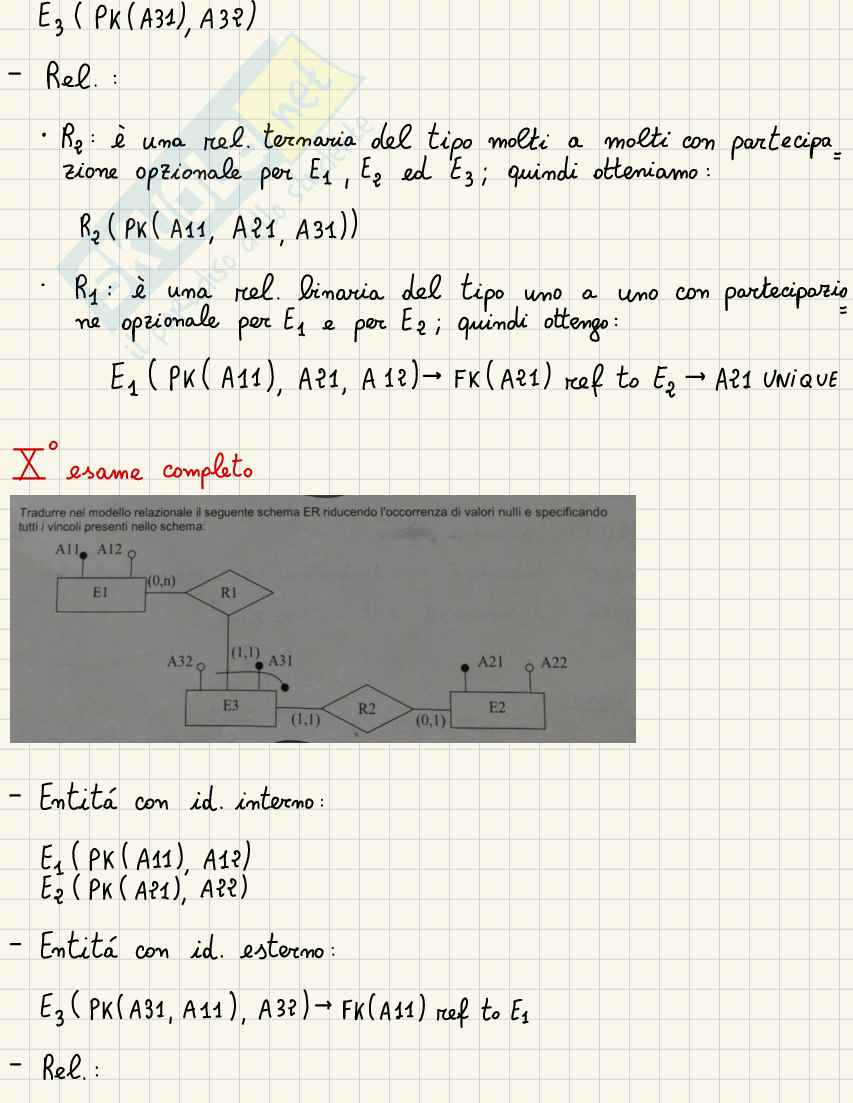 E3 ( PK(A31), A32)
- Rel. :
· R2: è una rel. ternaria del tipo molti a molti con partecipa=
zione opzionale per E1, E2 ed E3; quindi otteniamo:
R2 ( PK( A11, A21, A31))
· R1: è una rel. binaria del tipo uno a uno con partecipazio=
ne opzionale per E1 e per E2; quindi ottengo:
E1 ( PK( A11), A21, A12) → FK(A21) ref to E2 → A21 UNIQUE
X° esame completo
Tradurre nel modello relazionale il seguente schema ER riducendo l'occorrenza di valori nulli e specificando
tutti i vincoli presenti nello schema:
A11 A12
E1 (0,n) R1
A32 (1,1) A31 A21 A22
E3 (1,1) R2 (0,1) E2
- Entitá con id. interno:
E1 ( PK(A11), A12)
E2 ( PK(A21), A22)
- Entitá con id. esterno:
E3 ( PK(A31, A11), A32) → FK(A11) ref to E1
- Rel. :